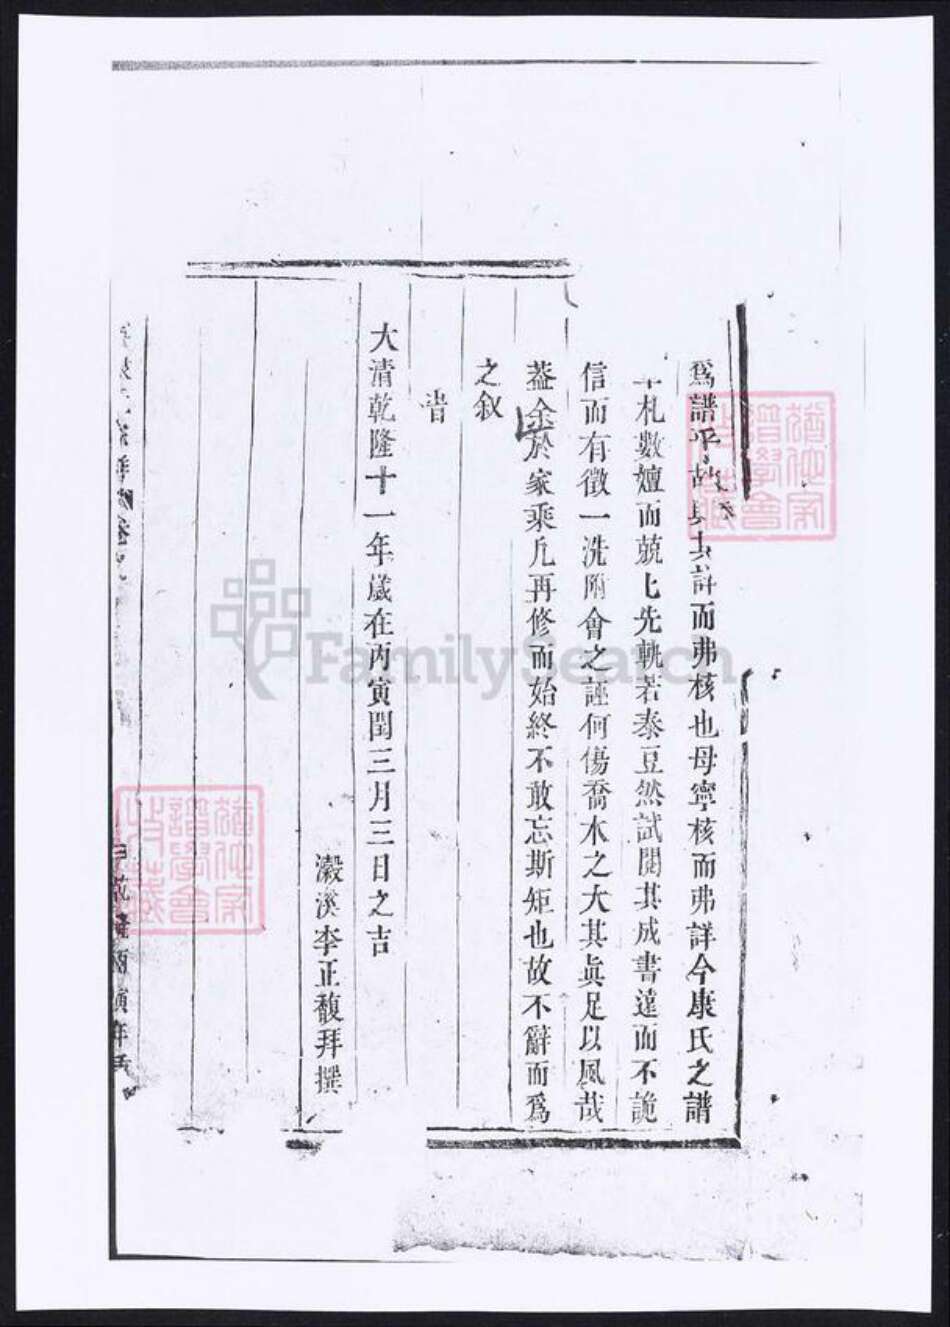 爲譜平故與其詳而弗核也毋寧核而弗詳今康氏之譜
札數嬗而兢兢先軌若泰豆然試閱其成書遠而不詭
信而有徵一洗附會之誣何傷喬木之大其眞足以風哉
葢余於家乘凢再修而始終不敢忘斯矩也故不辭而爲
之叙
旹
大清乾隆十一年歲在丙寅閏三月三日之吉
瀫溪李正馥拜撰
FamilySearch